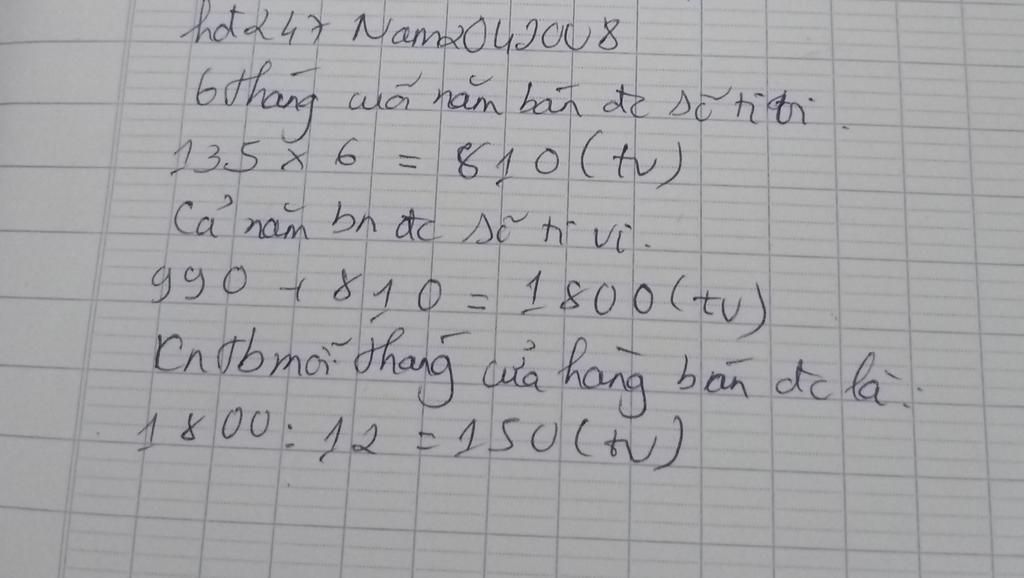 hdt247 Nam2042008
6 tháng cuối năm bán đc số ti vi.
135 x 6 = 810 (tv)
Cả năm bn đc số ti vi.
990 + 810 = 1800 (tv)
tb mỗi tháng cửa hàng bán đc là:
1800 : 12 = 150 (tv)